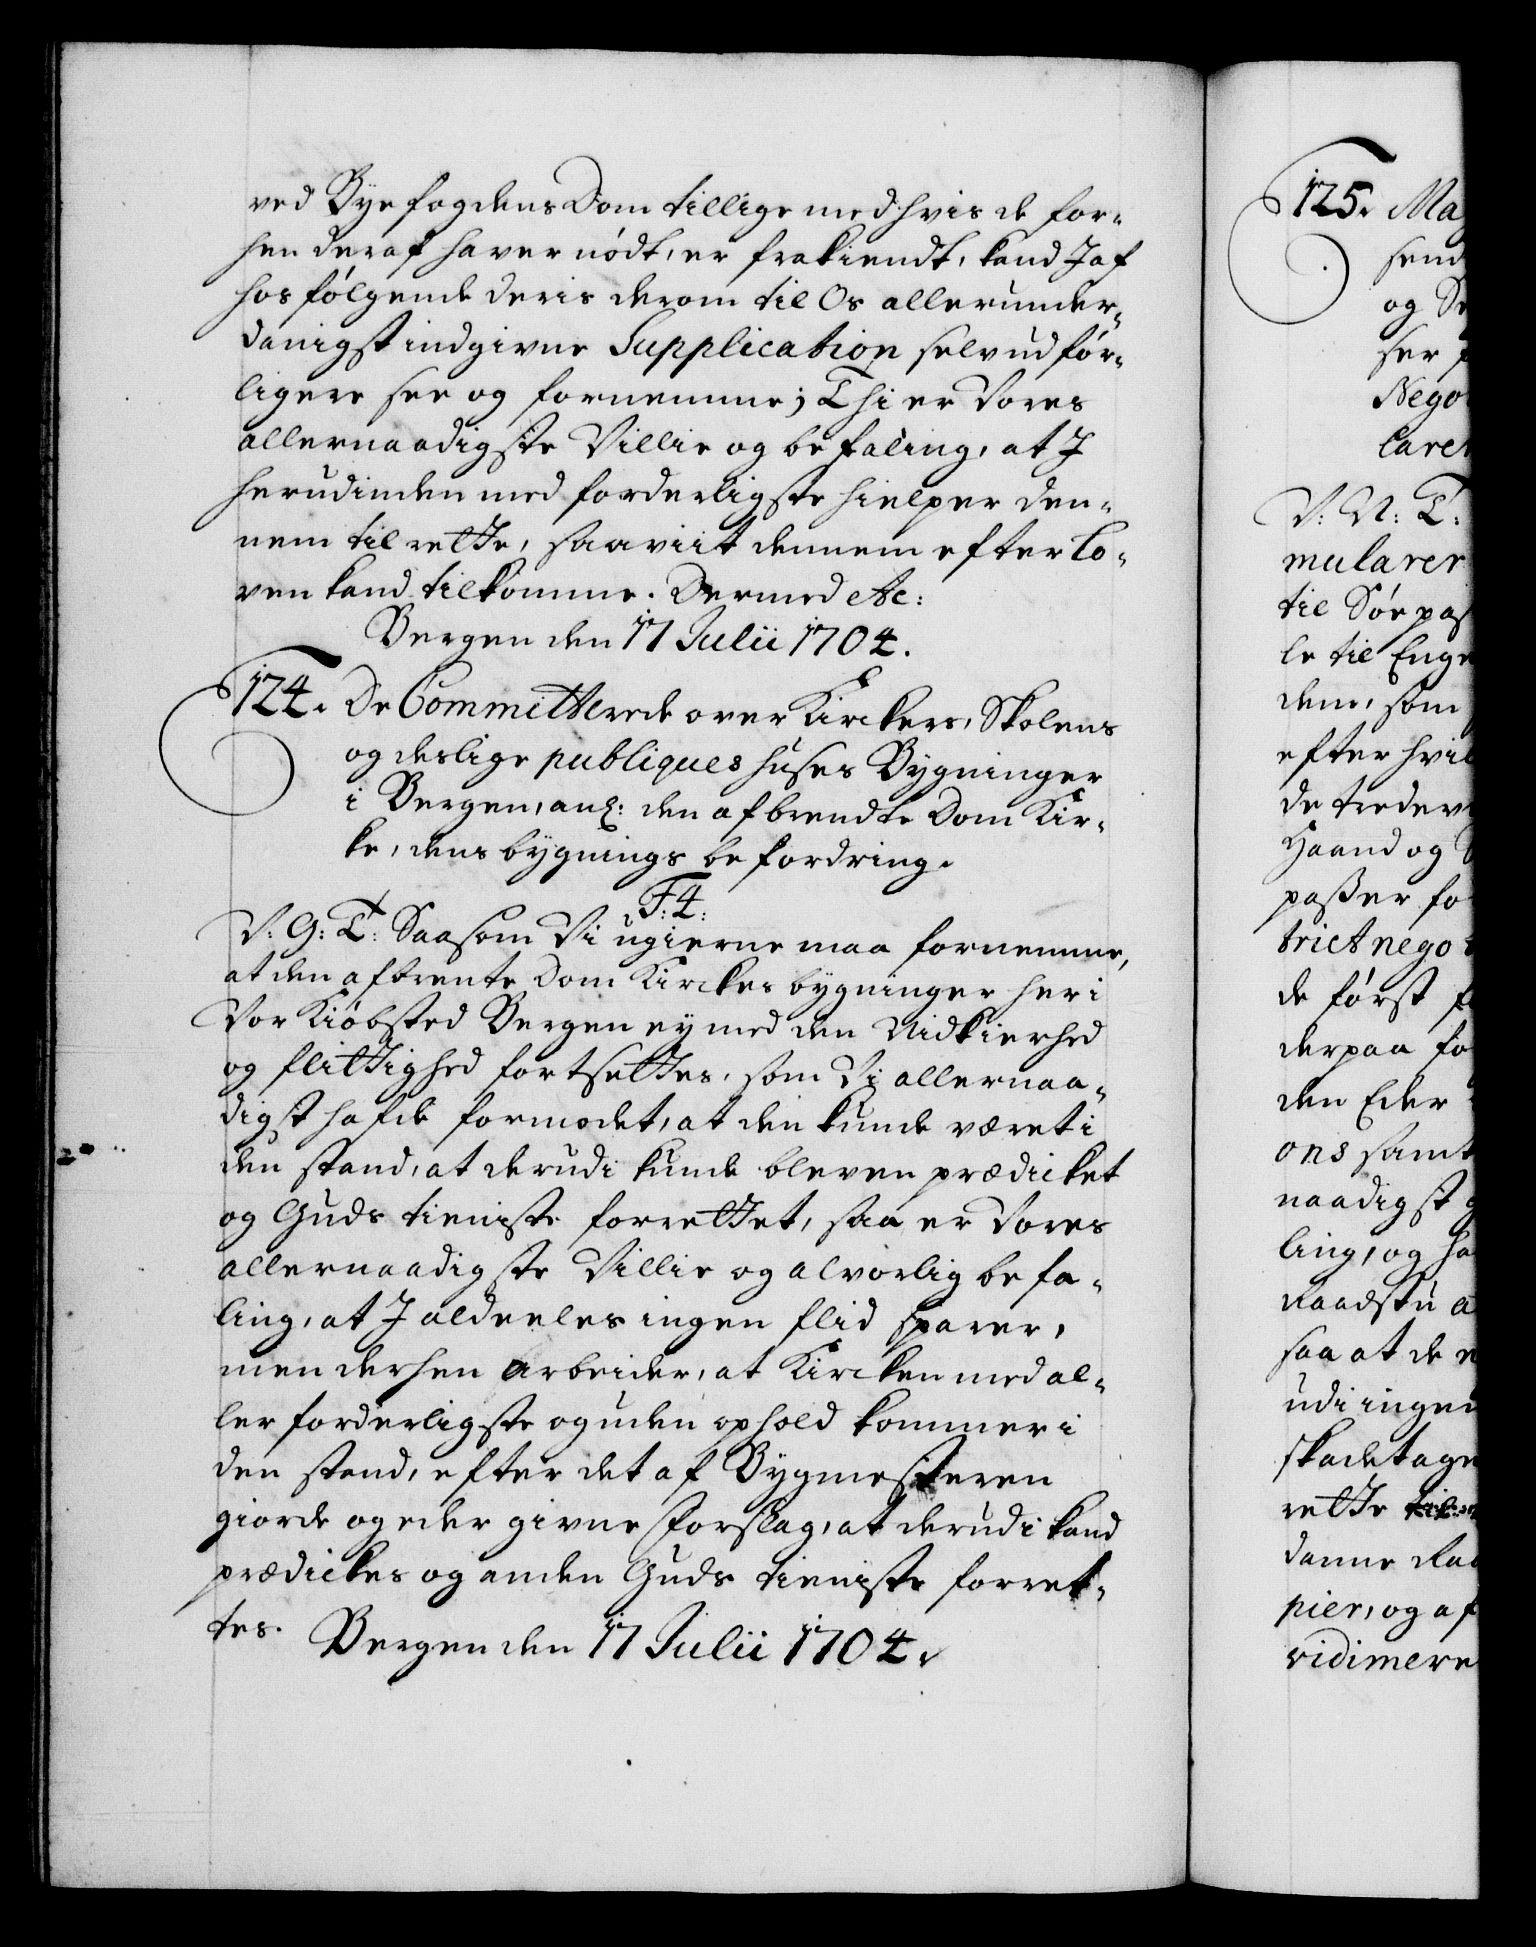 ved Bye fogdens Dom tillige med hvis de for-
hen deraf haver nödt, er frakiendt, kand I af
hos fölgende deris derom til Os allerunder-
danigst indgivne Supplication selv udför-
ligere see og fornemme; Thi er Vores
allernaadigste Villie og befaling, at I
herudinden med forderligste hielper den-
nem til rette, saaviit dennem efter Lo-
ven kand tilkomme. Dermed etc:
Bergen den 17 Julii 1704.
124. De Committerede over Kirckers, Skolens
og deslige publiques huses Bygninger
i Bergen, anl: den afbrendte Dom Kir-
ke, dens bygnings befordring.
F: 4:
V: G: T: Saasom Vi ugierne maa fornemme,
at den afbrente Dom Kirckes bygninger her i
Vor Kiöbsted Bergen ey med den Nidkierhed
og flittighed fortsettes, som Vi allernaa-
digst hafde formodet, at den kunde været i
den stand, at derudi kunde bleven prædicket
og Guds tieniste forrettet, saa er Vores
allernaadigste Villie og alvorlig befa-
ling, at I aldeeles ingen flid sparer,
men derhen arbeider, at Kircken med al-
ler forderligste og uden ophold kommer i
den stand, efter det af Bygmesteren
giorde og eder givne forslag, at derudi kand
prædickes og anden Guds tieniste forret-
tes.
Bergen den 17 Julii 1704.
125. Ma
send
og Se
ser
Nego
Caret
V: N: T:
mularer
til Söe pas
le til Enge
dem, som
efter hvil
de treden
Haand og
passer fo
trict nego
de först
derpaa fo
den Eder
ons samt
naadigst
ling, og ha
Raadstu
saa at de
udi ingen
skade tage
rette
danne Raa
pier, og af
vidimere